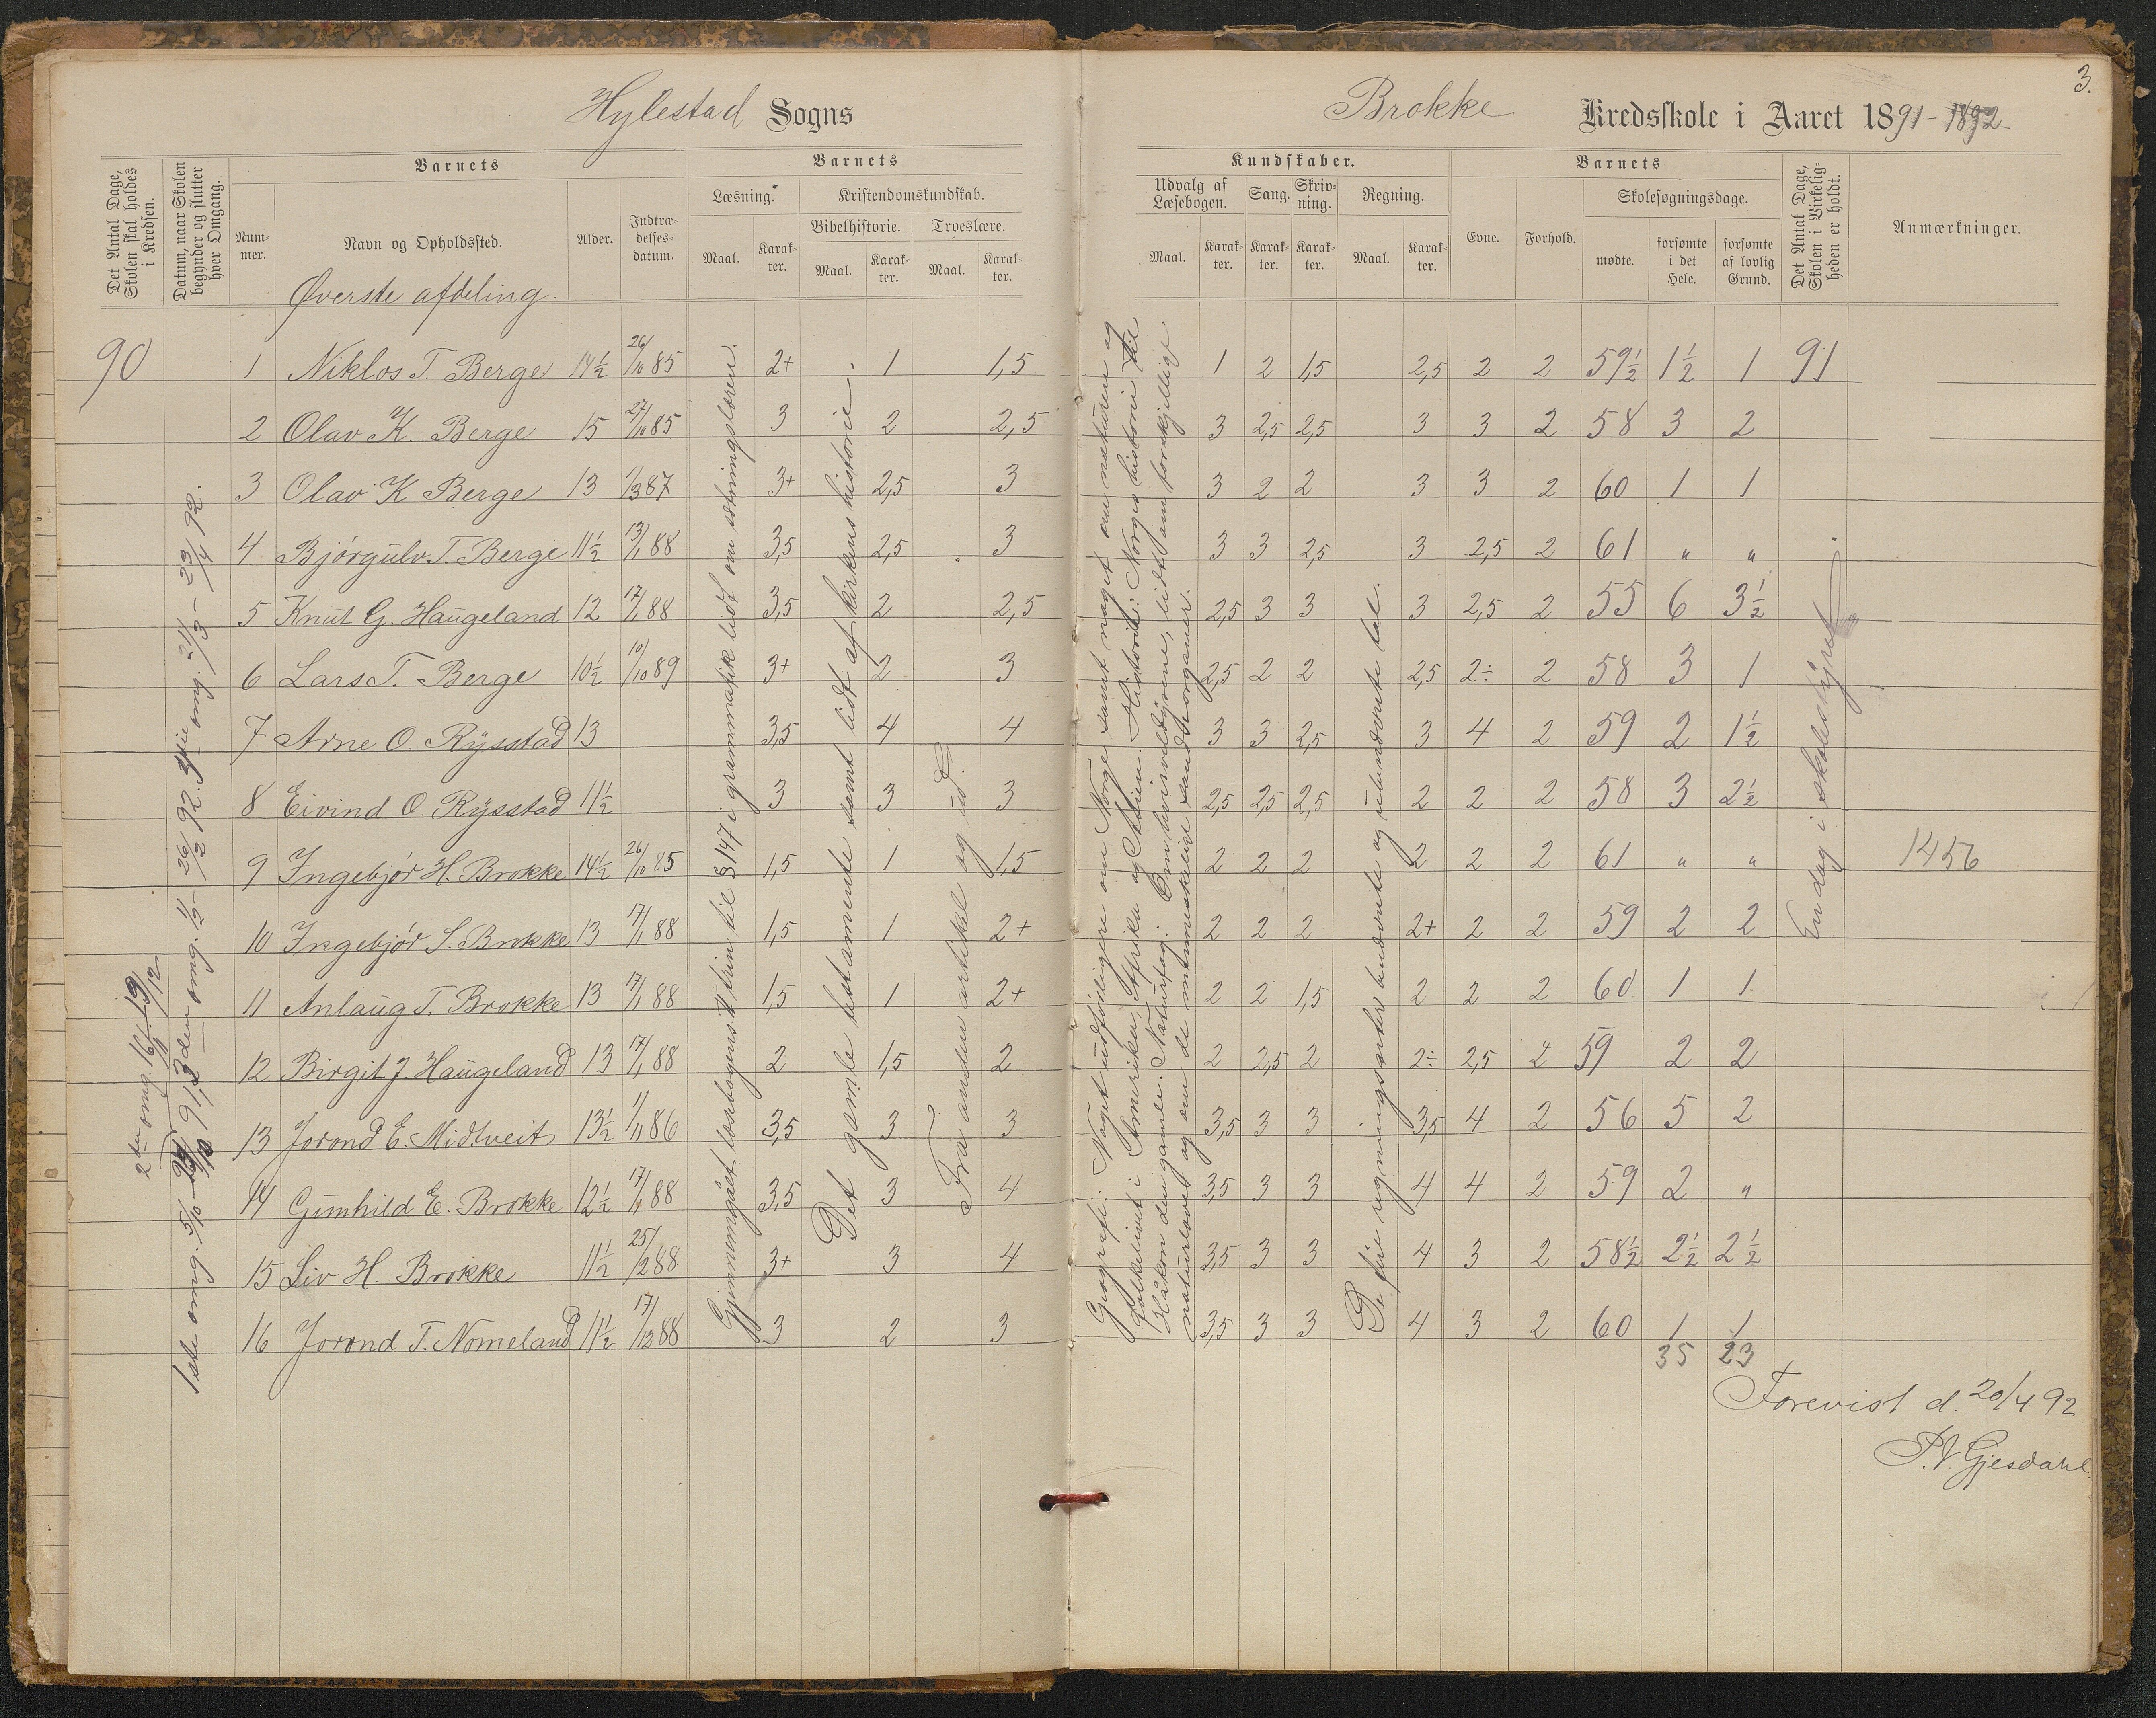 3.
Hylestad Sogns
Brokke Kredsskole i Aaret 1891-1892
Det Antal Dage, Skolen skal holdes i Kredsen.
Datum, naar Skolen begynder og slutter hver Omgang.
Barnets
Nummer.
Navn og Opholdssted.
Alder.
Indtrædelsesdatum.
Barnets
Læsning.
Maal.
Karakter.
Kristendomskundskab.
Bibelhistorie.
Maal.
Karakter.
Troeslære.
Maal.
Karakter.
Kundskaber.
Udvalg af Læsebogen.
Maal.
Karakter.
Sang.
Karakter.
Skrivning.
Karakter.
Regning.
Maal.
Karakter.
Barnets
Evne.
Forhold.
Skolesøgningsdage.
mødte.
forsømte i det Hele.
forsømte af lovlig Grund.
Det Antal Dage, Skolen i Virkeligheden er holdt.
Anmærkninger.
Øverste afdeling.
90 1 Niklos T. Berge 14½ 26/10 85 2+ 1 1,5 1 2 1,5 2,5 2 2 59½ 1½ 1 91
2 Olav K. Berge 15 27/10 85 3 2 2,5 3 2,5 2,5 3 3 2 58 3 2
3 Olav K Berge 13 1/3 87 3+ 2,5 3 3 2 2 3 3 2 60 1 1
4 Bjørgulv T. Berge 11½ 13/1 88 3,5 2,5 3 3 3 2,5 3 2,5 2 61 " "
5 Knut G. Haugeland 12 17/1 88 3,5 2 2,5 2,5 3 3 3 2,5 2 55 6 3½
6 Lars T. Berge 10½ 10/10 89 3+ 2 3 2,5 2 2 2,5 2÷ 2 58 3 1
7 Arne O. Rysstad 13 3,5 4 4 3 3 2,5 3 4 2 59 2 1½
8 Eivind O. Rysstad 11½ 3 3 3 2,5 2,5 2,5 2 2 2 58 3 2½
9 Ingebjør H. Brokke 14½ 26/10 85 1,5 1 1,5 2 2 2 2 2 2 61 " " 1456
10 Ingebjør S. Brokke 13 17/1 88 1,5 1 2+ 2 2 2 2+ 2 2 59 2 2
11 Anlaug T. Brokke 13 17/1 88 1,5 1 2+ 2 2 1,5 2 2 2 60 1 1
12 Birgit J. Haugeland 13 17/1 88 2 1,5 2 2 2,5 2 2÷ 2,5 2 59 2 2
13 Jorond E. Midtveit 13½ 1/11 86 3,5 3 3 3,5 3 3 3,5 4 2 56 5 2
14 Gunhild E. Brokke 12½ 17/1 88 3,5 3 4 3,5 3 3 4 4 2 59 2 "
15 Liv H. Brokke 11½ 25/2 88 3+ 3 4 3,5 3 3 4 3 2 58½ 2½ 2½
16 Jorond T. Nomeland 11½ 17/12 88 3 2 3 3,5 3 3 4 3 2 60 1 1
35 23
1ste omg. 5/10 - 91, 3den omg. 1/2 - 26/2 92. omg. 21/3 - 23/4 92.
2den omg. 16/11 - 19/12
Gjennemgået læsebogens trin til § 147 i grammatik lidt om sætningslæren.
Det gamle testamente samt lidt af kirkens historie.
Fra anden artikkel og ud.
Geografi: Noget udførligere om Norge samt noget om naturen og
Folkelivet i Amerika, Afrika og Asien. Historie: Norges historie til
Håkon den gamle. Naturfag: Om hvirveldyrene, lidt om forskjellige
naturlove og om de menneskelige sandseorganer.
De fire regningsarter i benævnte og ubenævnte tal.
En dag i skolestyret
Forevist d. 20/4 92
P.V. Gjesdahl.